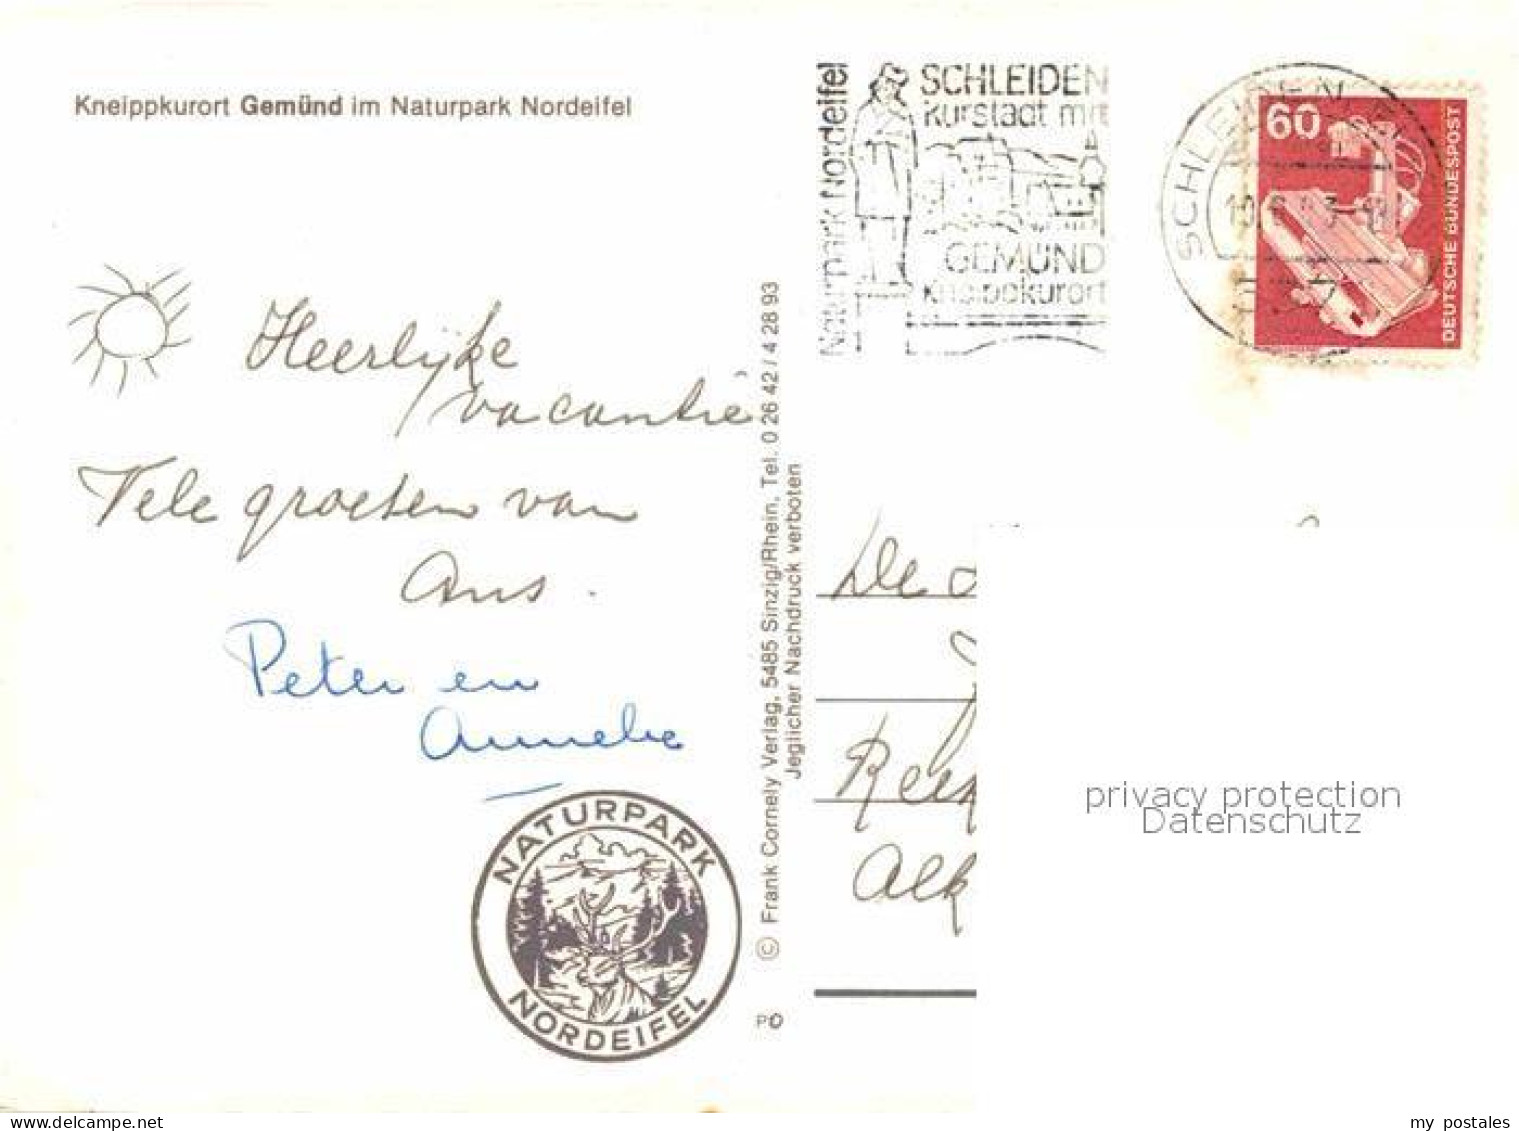 Kneippkurort Gemünd im Naturpark Nordeifel
Heerlijke
vacantie
Vele groeten van
Ans.
Peter en
Anneke
NATURPARK
NORDEIFEL
© Frank Cornely Verlag, 5485 Sinzig/Rhein, Tel. 0 26 42 / 4 28 93
Jeglicher Nachdruck verboten
Naturpark Nordeifel
SCHLEIDEN
Kurstadt mit
GEMÜND
Kneippkurort
SCHLEIDEN
60
DEUTSCHE BUNDESPOST
De
Alk
privacy protection
Datenschutz
my postales